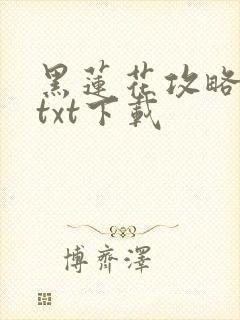 黑蓮花攻略
txt下載
博齊澤